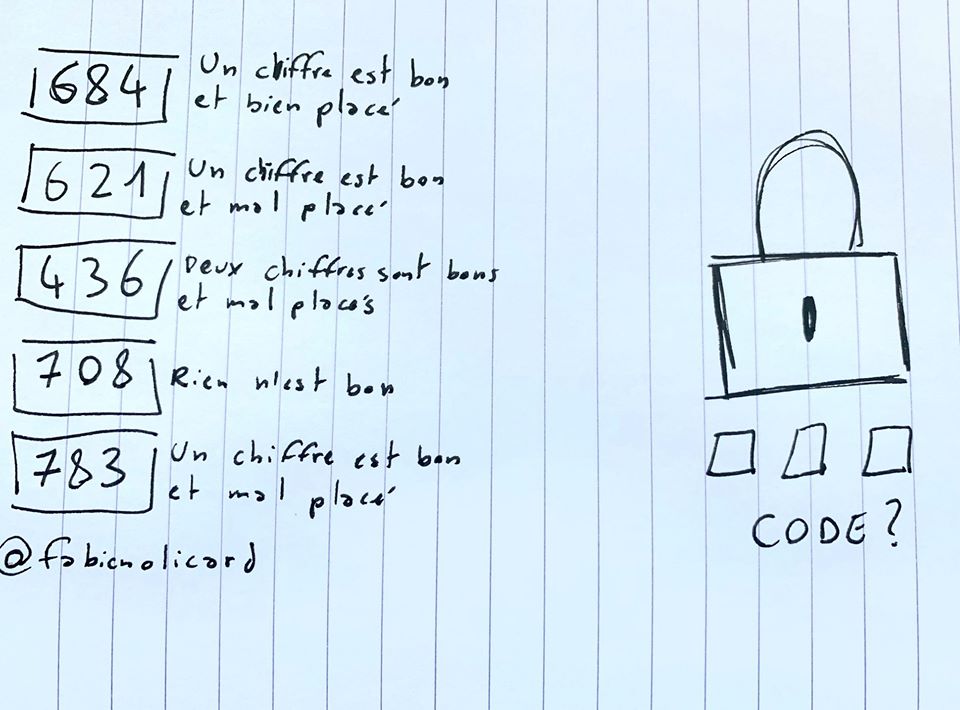 684
Un chiffre est bon
et bien placé
621
Un chiffre est bon
et mal placé
436
Deux chiffres sont bons
et mal placés
708
Rien n'est bon
783
Un chiffre est bon
et mal placé
@fabienolicard
CODE?